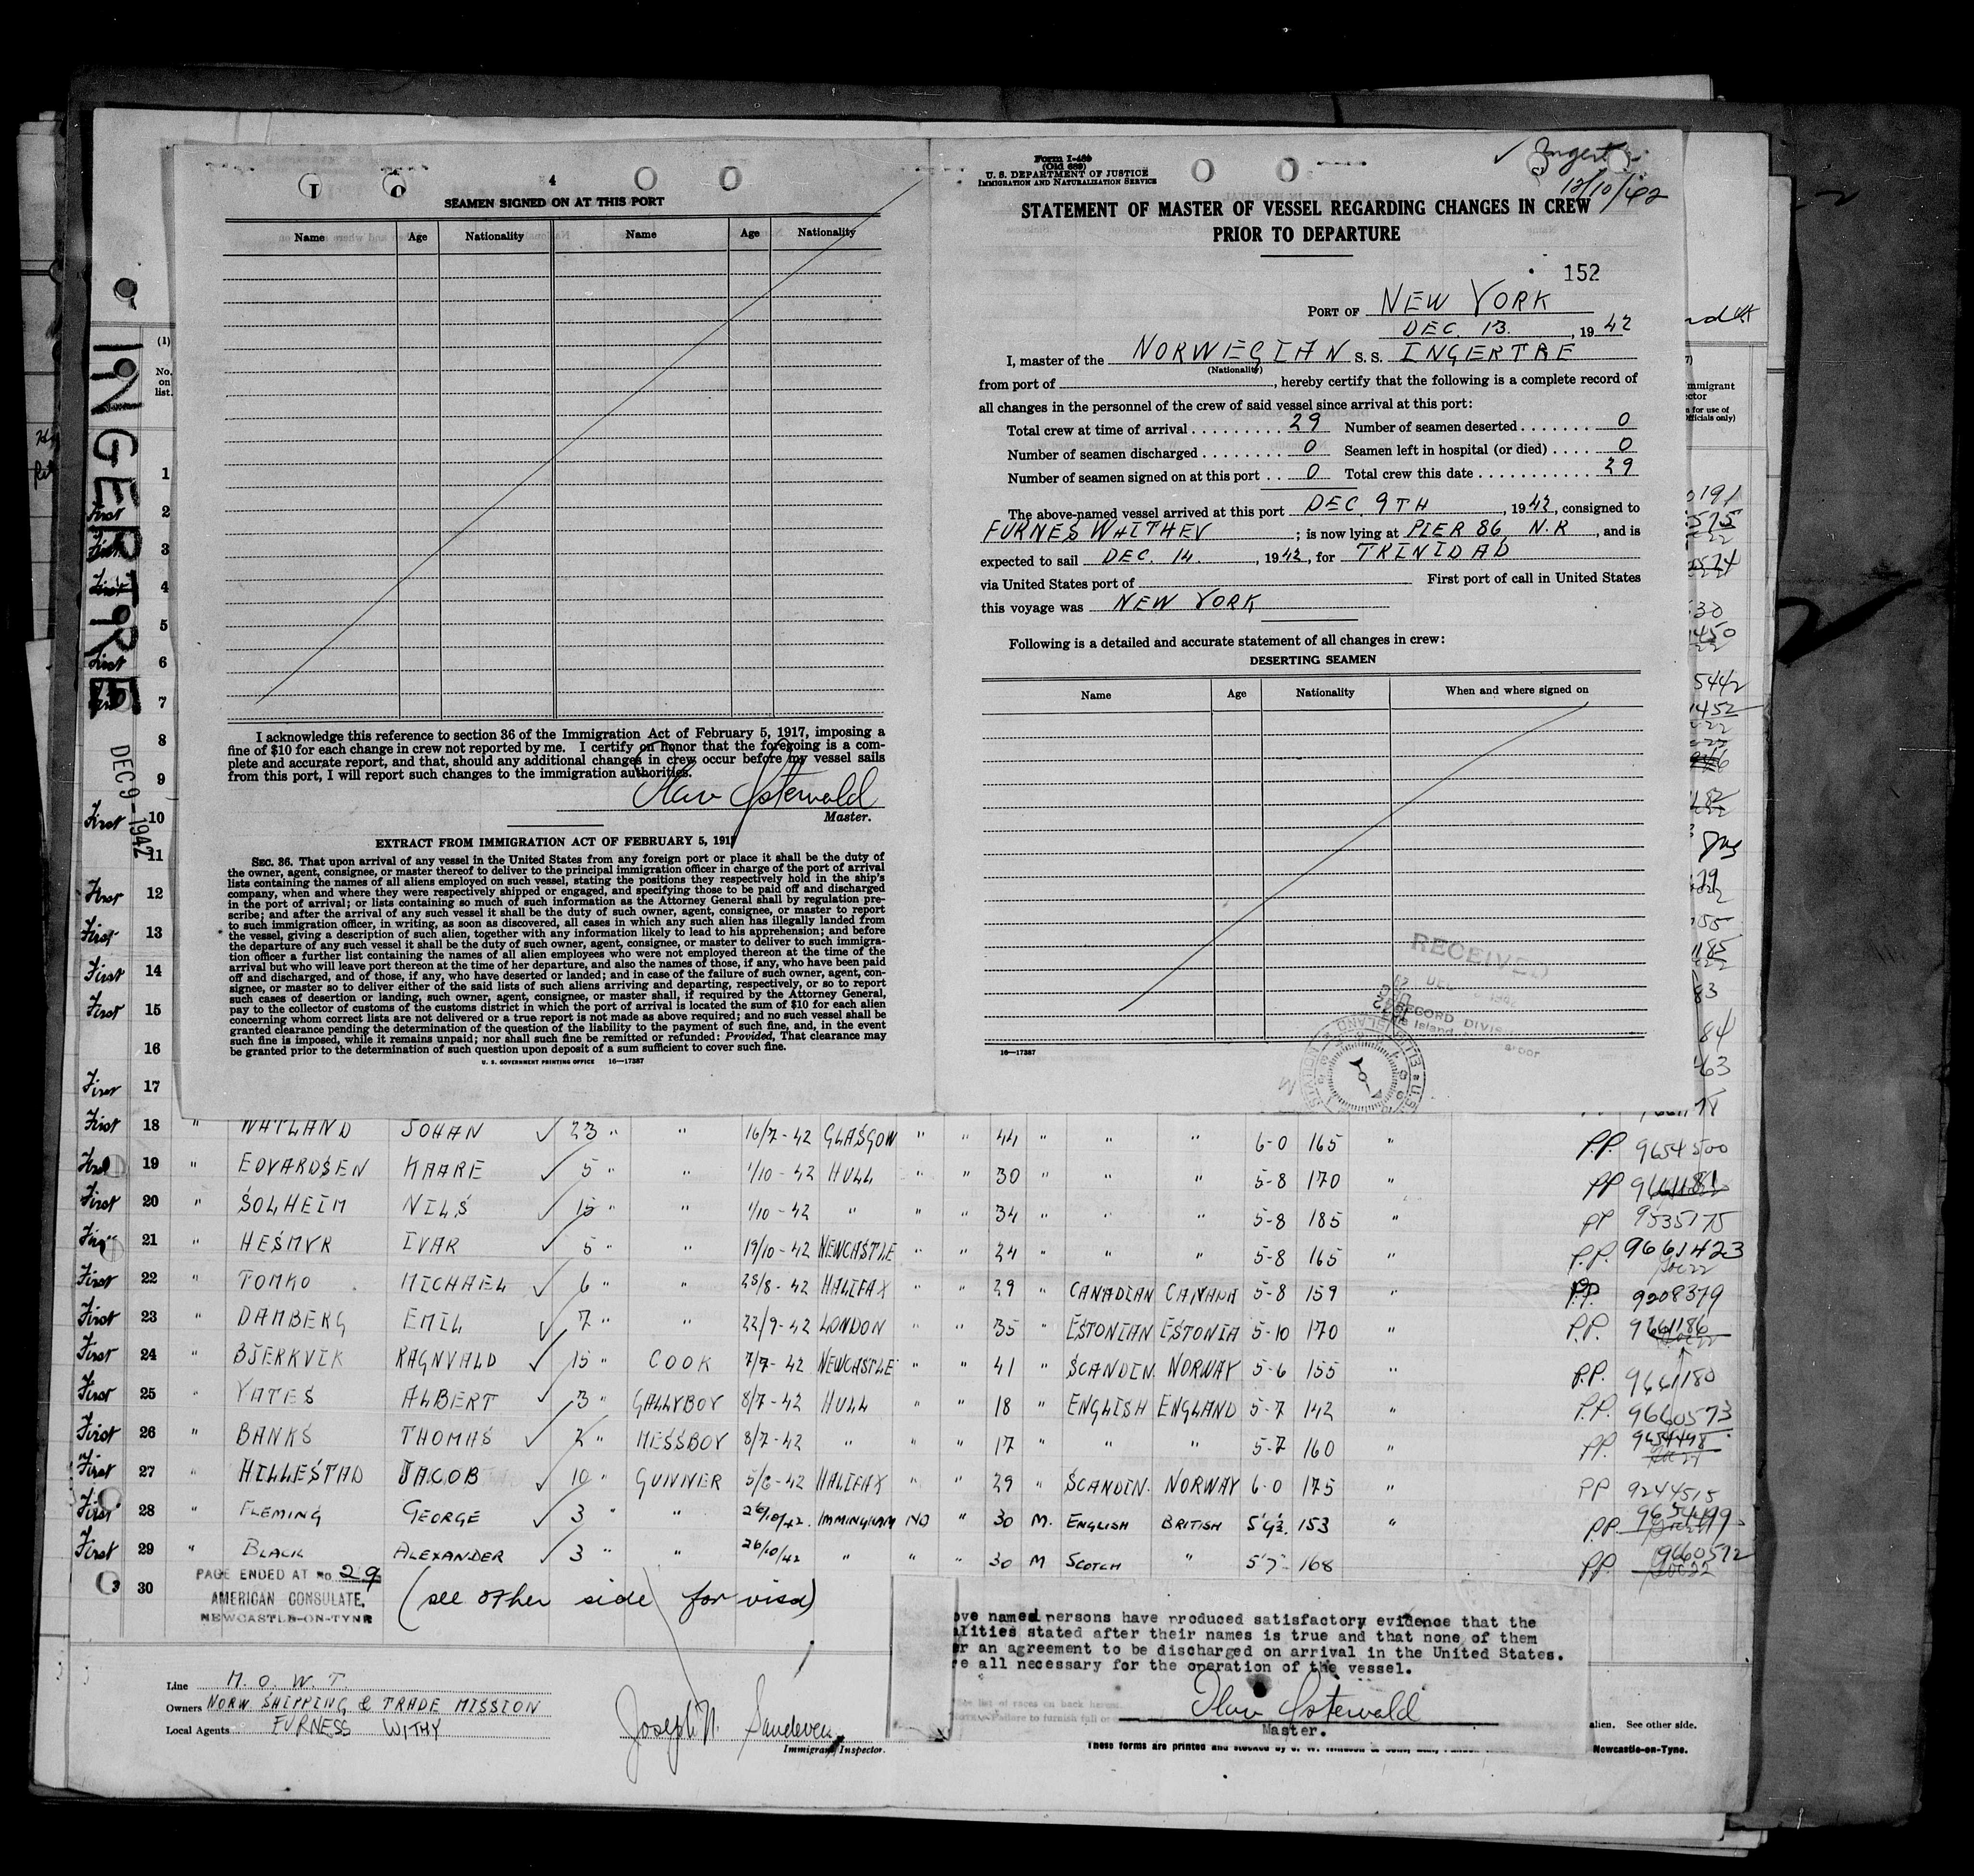 4
SEAMEN SIGNED ON AT THIS PORT
Name Age Nationality Name Age Nationality
I acknowledge this reference to section 36 of the Immigration Act of February 5, 1917, imposing a
fine of $10 for each change in crew not reported by me. I certify on honor that the foregoing is a com-
plete and accurate report, and that, should any additional changes in crew occur before my vessel sails
from this port, I will report such changes to the immigration authorities.
Olav Osterwold
Master.
EXTRACT FROM IMMIGRATION ACT OF FEBRUARY 5, 1917
SEC. 36. That upon arrival of any vessel in the United States from any foreign port or place it shall be the duty of
the owner, agent, consignee, or master thereof to deliver to the principal immigration officer in charge of the port of arrival
lists containing the names of all aliens employed on such vessel, stating the positions they respectively hold in the ship's
company, when and where they were respectively shipped or engaged, and specifying those to be paid off and discharged
in the port of arrival; or lists containing so much of such information as the Attorney General shall by regulation pre-
scribe; and after the arrival of any such vessel it shall be the duty of such owner, agent, consignee, or master to report
to such immigration officer, in writing, as soon as discovered, all cases in which any such alien has illegally landed from
the vessel, giving a description of such alien, together with any information likely to lead to his apprehension; and before
the departure of any such vessel it shall be the duty of such owner, agent, consignee, or master to deliver to such immigra-
tion officer a further list containing the names of all alien employees who were not employed thereon at the time of the
arrival but who will leave port thereon at the time of her departure, and also the names of those, if any, who have been paid
off and discharged, and of those, if any, who have deserted or landed; and in case of the failure of such owner, agent, con-
signee, or master so to deliver either of the said lists of such aliens arriving and departing, respectively, or so to report
such cases of desertion or landing, such owner, agent, consignee, or master shall, if required by the Attorney General,
pay to the collector of customs of the customs district in which the port of arrival is located the sum of $10 for each alien
concerning whom correct lists are not delivered or a true report is not made as above required; and no such vessel shall be
granted clearance pending the determination of the question of the liability to the payment of such fine, and, in the event
such fine is imposed, while it remains unpaid; nor shall such fine be remitted or refunded: Provided, That clearance may
be granted prior to the determination of such question upon deposit of a sum sufficient to cover such fine.
U. S. GOVERNMENT PRINTING OFFICE 16—17387
Form I-489
(Old 689)
U. S. DEPARTMENT OF JUSTICE
IMMIGRATION AND NATURALIZATION SERVICE
12/10/42
STATEMENT OF MASTER OF VESSEL REGARDING CHANGES IN CREW
PRIOR TO DEPARTURE
152
PORT OF NEW YORK
DEC. 13., 19 42
I, master of the NORWEGIAN S. S. INGERTRE
(Nationality)
from port of , hereby certify that the following is a complete record of
all changes in the personnel of the crew of said vessel since arrival at this port:
Total crew at time of arrival 29 Number of seamen deserted 0
Number of seamen discharged 0 Seamen left in hospital (or died) 0
Number of seamen signed on at this port 0 Total crew this date 29
The above-named vessel arrived at this port DEC. 9TH, 1942, consigned to
FURNES WHITHEY ; is now lying at PIER 86, N.R, and is
expected to sail DEC. 14., 1942, for TRINIDAD
via United States port of First port of call in United States
this voyage was NEW YORK
Following is a detailed and accurate statement of all changes in crew:
DESERTING SEAMEN
Name Age Nationality When and where signed on
RECEIVED
RECORD DIVISION
16—17387
INGERTRE
DEC 9 - 1942
(1)
No.
on
list.
1
First 2
First 3
First 4
5
First 6
7
8
9
First 10
11
First 12
First 13
First 14
First 15
16
First 17
First 18 " WATLAND JOHAN 23 " " 16/7-42 GLASGOW " " 44 " " " 6-0 165 " P.P. 9654500
First 19 " EDVARDSEN KAARE 5 " " 1/10-42 HULL " " 30 " " " 5-8 170 " PP 9661181
First 20 " SOLHEIM NILS 15 " " 1/10-42 " " " 34 " " " 5-8 185 " PP 9535175
First 21 " HESMYR IVAR 5 " " 19/10-42 NEWCASTLE " " 24 " " " 5-8 165 " P.P. 9661423
First 22 " TOMKO MICHAEL 6 " " 25/8-42 HALIFAX " " 29 " CANADIAN CANADA 5-8 159 " P.P. 9208379
First 23 " DAMBERG EMIL 7 " " 22/9-42 LONDON " " 35 " ESTONIAN ESTONIA 5-10 170 " P.P. 9661186
First 24 " BJERKVIK RAGNVALD 15 " COOK 7/7-42 NEWCASTLE " " 41 " SCANDIN. NORWAY 5-6 155 " P.P. 9661180
First 25 " YATES ALBERT 3 " GALLYBOY 8/7-42 HULL " " 18 " ENGLISH ENGLAND 5-7 142 " P.P. 9660573
First 26 " BANKS THOMAS 2 " MESSBOY 8/7-42 " " " 17 " " " 5-7 160 " PP. 9654498
First 27 " HILLESTAD JACOB 10 " GUNNER 5/6-42 HALIFAX " " 29 " SCANDIN. NORWAY 6-0 175 " PP 9244515
First 28 " FLEMING GEORGE 3 " " 26/10/42. IMMINGHAM NO " 30 M. ENGLISH BRITISH 5'9½ 153 " P.P. 9654499
First 29 " BLACK ALEXANDER 3 " " 26/10/42 " " " 30 M SCOTCH " 5'7" 168 PP. 9660572
30
PAGE ENDED AT No. 29
AMERICAN CONSULATE,
NEWCASTLE-ON-TYNE
(see other side for visa)
ove named persons have produced satisfactory evidence that the
alities stated after their names is true and that none of them
er an agreement to be discharged on arrival in the United States.
re all necessary for the operation of the vessel.
Olav Osterwold
Master.
Line M. O. W. T.
Owners NORW. SHIPPING & TRADE MISSION
Local Agents FURNESS WITHY
Joseph N.
Immigrant Inspector.
alien. See other side.
These forms are printed and stocked by
Newcastle-on-Tyne.